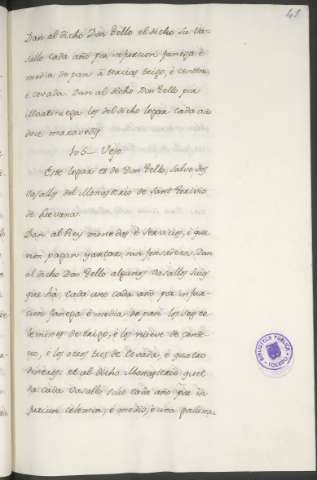 41
Dan al dicho Dan Tello el dicho su Va-
sallo cada año por infurcion fanega è
media de pan à tercias trigo, è centeno
è cevada. Dan al dicho Dan Tello por
Martiniega los del dicho logar cada año
doce maravedis
105 Vejo
Este logar es de Dan Tello, salvo dos
Vasallos del Monasterio de Sant Toribio
de Lievana.
Dan al Rey monedas è servicios, è que
non pagan yantar, nin fonsadera. Dan
al dicho Dan Tello algunos Vasallos suios
que hà, cada uno cada año por infur-
cion fanega è media de pan los seys ce-
lemines de trigo, è los nueve de cente-
no, è los otros tres de cevada, è quatro
dineros: et al dicho Monasterio quel
ha cada Vasallo suio cada año por in
furcion celemin, è medio, è una gallina
BIBLIOTECA PUBLICA
TOLEDO